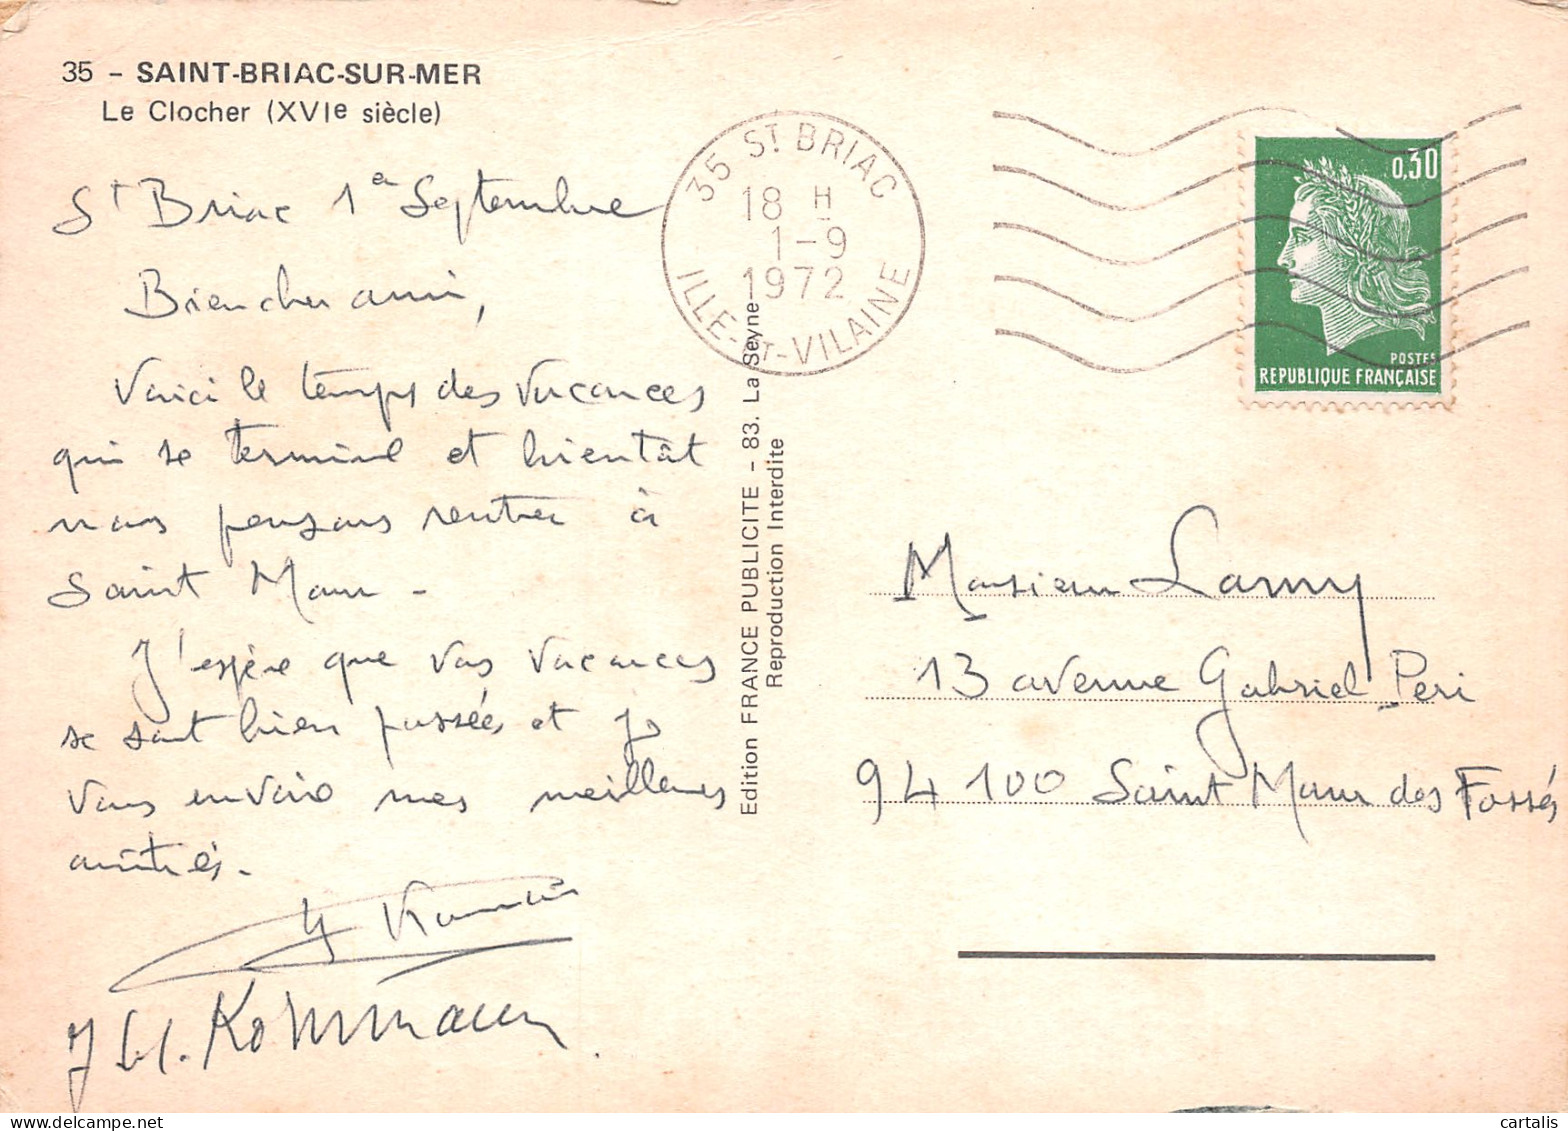 35 - SAINT-BRIAC-SUR-MER
Le Clocher (XVIe siècle)
St Briac 1er Septembre
Bien cher ami,
Voici le temps des vacances
qui se terminent et bientôt
nous pensons rentrer à
Saint Maur -
J'espère que vos vacances
se sont bien passées et je
vous envoie mes meilleures
amitiés.
Kommann
35 ST BRIAC
18 H
1-9
1972
ILLE-ET-VILAINE
Edition FRANCE PUBLICITE - 83. La Seyne
Reproduction Interdite
0,30
POSTES
REPUBLIQUE FRANÇAISE
Monsieur Lamy
13 avenue Gabriel Peri
94 100 Saint Maur des Fossés
cartalis